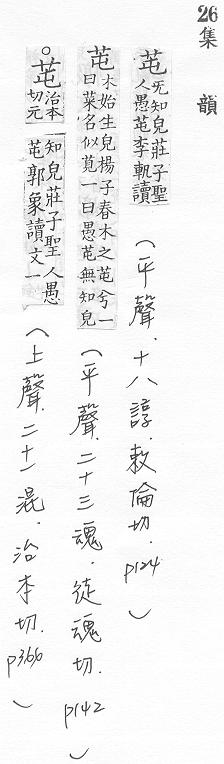 26 集韻
芚 无知皃莊子聖人愚芚李軌讀 (平聲.十八諄.敕倫切.p124)
芚 木始生皃楊子春木之芚兮一曰菜名似莧一曰愚芚無知皃 (平聲.二十三魂.徒魂切.p142)
○芚 治本切元知皃莊子聖人愚芚郭象讀文一 (上聲.二十一混.治本切.p366)